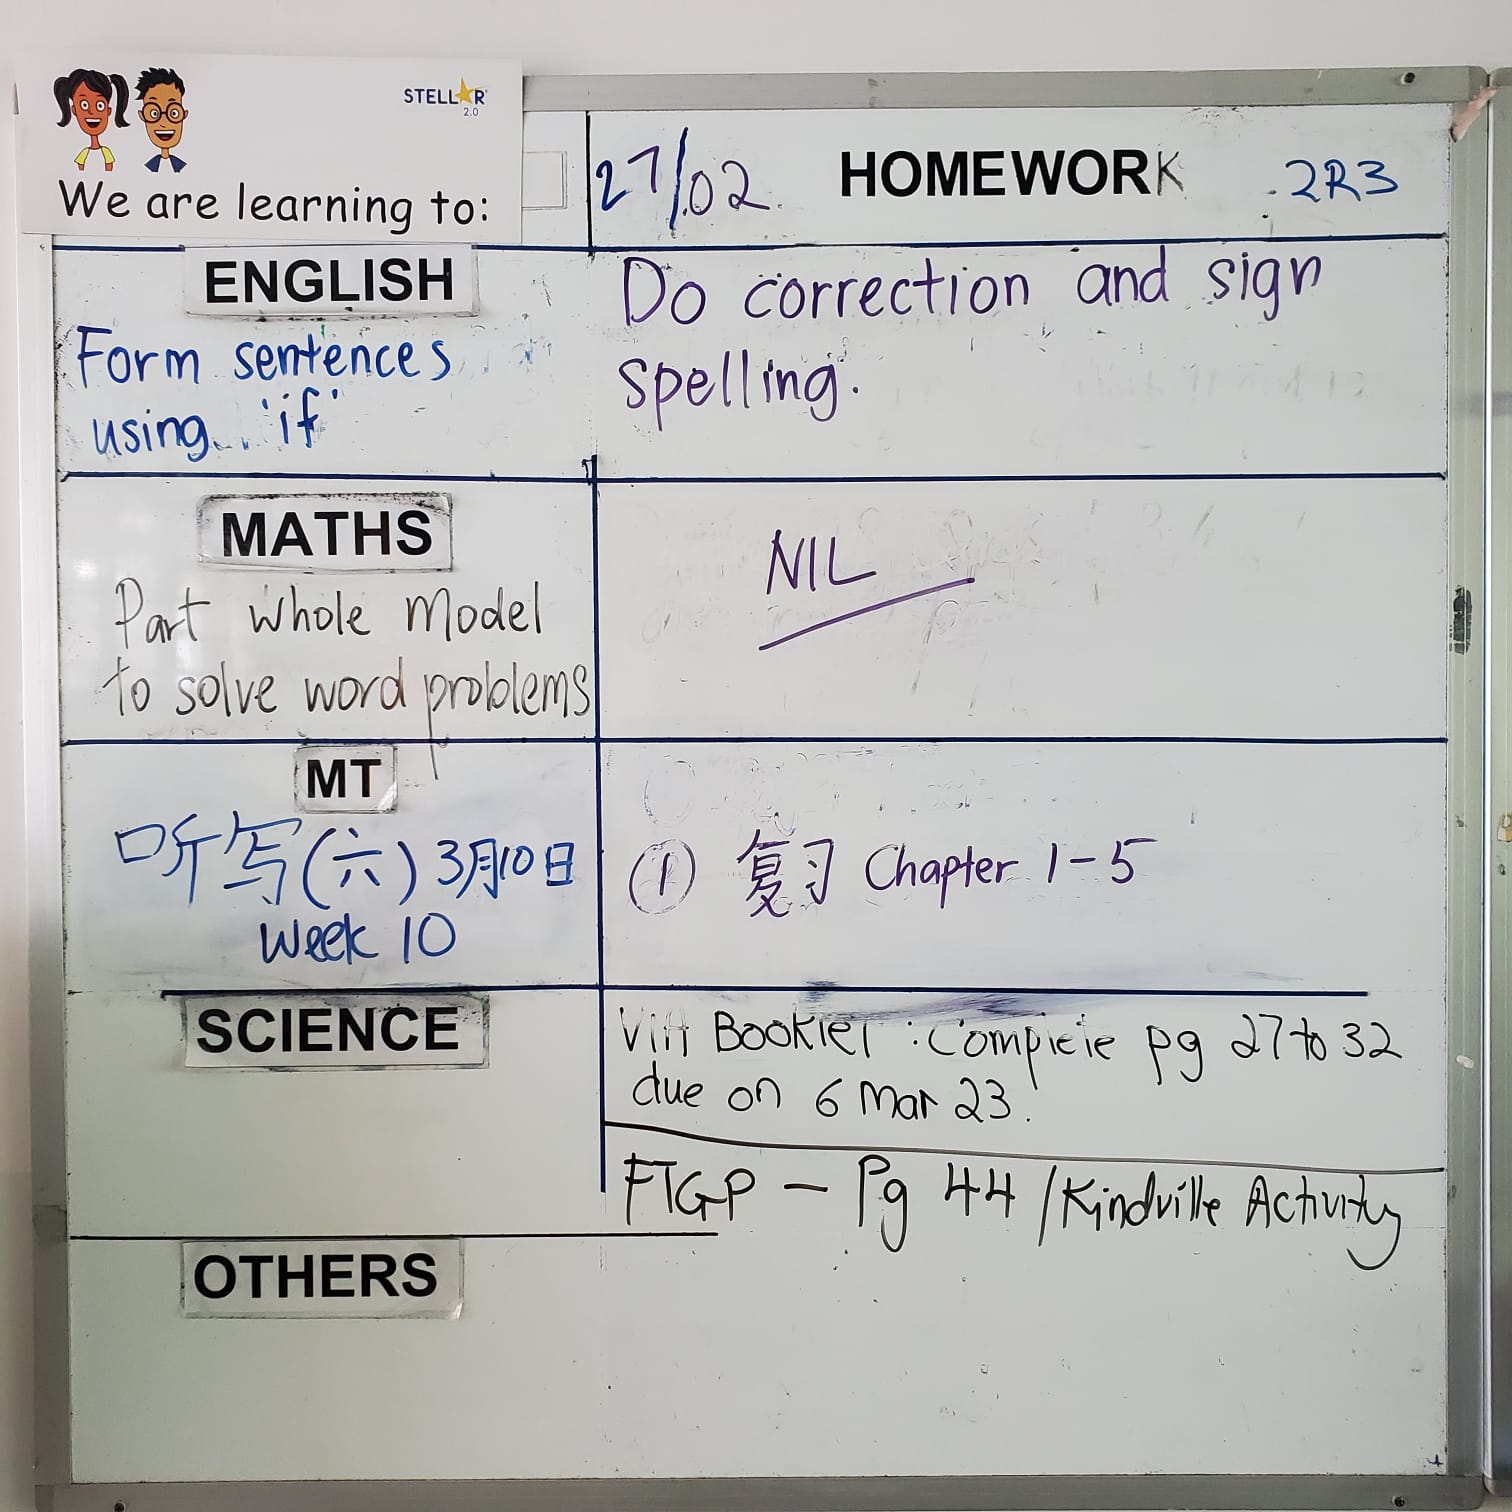 STELLAR
2.0
We are learning to:
27/02 HOMEWORK 2R3
ENGLISH
Form sentences
using 'if'
Do correction and sign
spelling.
MATHS
Part whole model
to solve word problems
NIL
MT
听写(六) 3月10日
Week 10
① 复习 Chapter 1-5
SCIENCE
Booklet : Complete pg 27 to 32
due on 6 Mar 23.
FTGP - Pg 44 / Kindville Activity
OTHERS